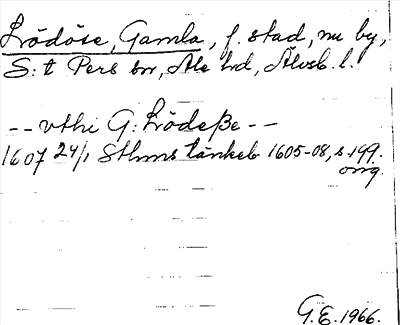 Lödöse, Gamla, f. stad, nu by,
S:t Pers sn, Ale hd, Älvsb. l.
-- vthi G: Lödeße --
1607 24/1 Sthlms tänkeb 1605-08, s 199.
orig.
G.E. 1966.